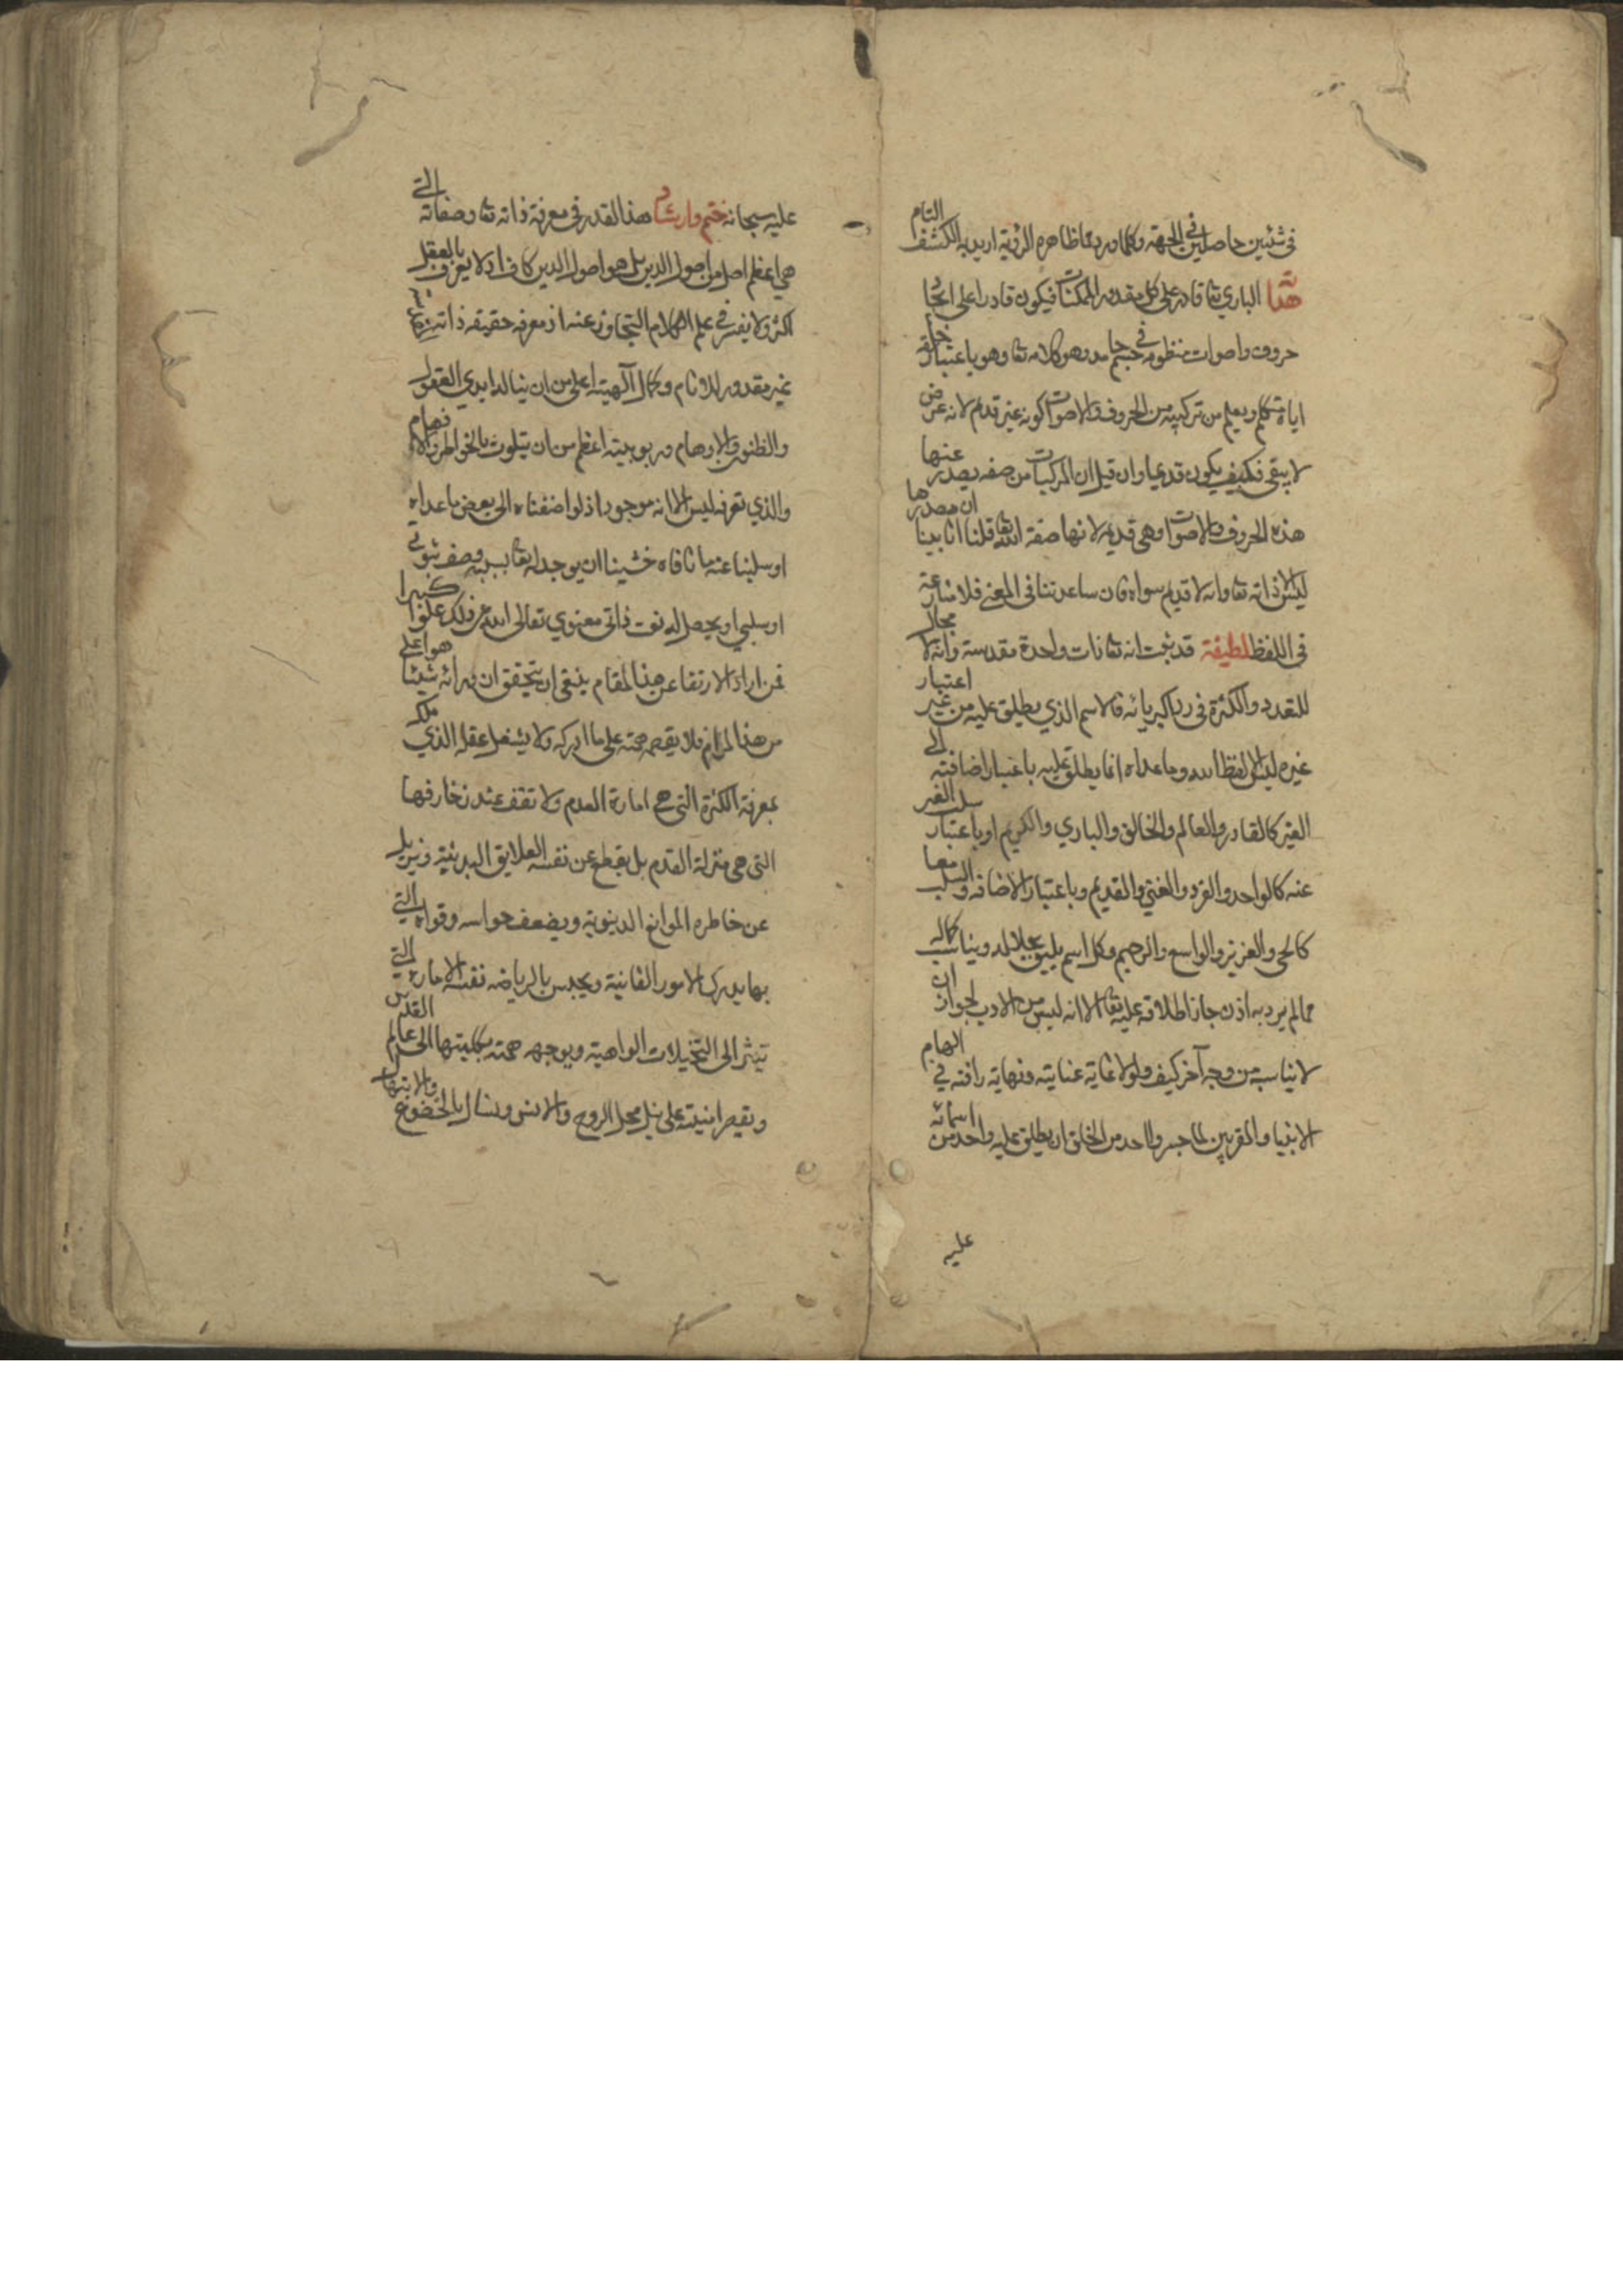 في شيئين حاصلين في الجهة وكلما ورد مما ظاهره الرؤية اريد به الكشف التام
هداية الباري تعا قادر على كل مقدور الممكنات فيكون قادرا على ايجاد
حروف واصوات منظومة في جسم جامد وهو كلامه تعا وهو باعتبار خلقه
اياه متكلم ويعلم من تركيبه من الحروف والاصوات كونه غير قديم لانه عرض
لا يبقى فكيف يكون قديما وان قيل ان المركبات من صفه يصدر عنها
هذه الحروف والاصوات وهي قديمه لانها صفة الله تعا قلنا انا بينا ان مصدرها
ليس الا ذاته تعا وانه لا قديم سواه فان ساعدتنا في المعنى فلا منازعة
في اللفظ لطيفة قد ثبت انه تعا ذات واحدة مقدسة وانه لا مجال
للتعدد والكثرة في رداء كبريائه فالاسم الذي يطلق عليه من غير اعتبار
غيره ليس الا لفظ الله وما عداه انما يطلق عليه باعتبار اضافته الى
الغير كالقادر والعالم والخالق والباري والكريم او باعتبار سلب الغير
عنه كالواحد والفرد والغني والقديم وباعتبار الاضافه والسلب معا
كالحي والعزيز والواسع والرحيم وكل اسم يليق بجلاله ويناسب كماله
مما لم يرد به اذن جاز اطلاقه عليه تعا الا انه ليس من الادب لجواز ان
لا يناسبه من وجه آخر كيف ولولا غاية عنايته ونهاية رافته في الهام
الانبيا والمقربين لما جسر احد من الخلق ان يطلق عليه واحد من اسمائه
عليه
عليه سبحانه ختم وارشاد هذا القدر في معرفة ذاته تعا وصفاته التي
هي اعظم اصل من اصول الدين بل هو اصول الدين كاف اذ لا يعرف بالعقل
اكثر ولا يتيسر في علم الكلام التجاوز عنه اذ معرفه حقيقه ذاته
غير مقدور للانام وكمال آلهيته اعلى من ان يناله ايدي العقول
والظنون والاوهام وربوبيته اعظم من ان يتلوث بالخواطر والافهام
والذي تعرفه ليس الا انه موجود اذ لو اضفناه الى بعض ما عداه
او سلبنا عنه ما نافاه خشينا ان يوجد له تعا بسببه وصف ثبوتي
او سلبي او يحصل له نعت ذاتي معنوي تعالى الله عن ذلك علوا كبيرا
فمن اراد الارتقا عن هذا المقام ينبغي ان يتحقق ان ورائه شيئا هو اعلى
من هذا المرام فلا يقصر همته على ما ادركه ولا يشغل عقله الذي ملكه
بمعرفة الكثرة التي هي امارة العدم ولا تقف عند زخارفها
التي هي منزلة القدم بل يقطع عن نفسه العلايق البدنية ويزيل
عن خاطره الموانع الدنيوية ويضعف حواسه وقواه التي
بها يدرك الامور الفانية ويحبس بالرياضه نفسه الامارة التي
تشر الى التخيلات الواهية ويوجه همته بكليتها الى عالم القدس
ويقصر امنيته على نيل محل الروح والانس ويسال بالخضوع والابتهال